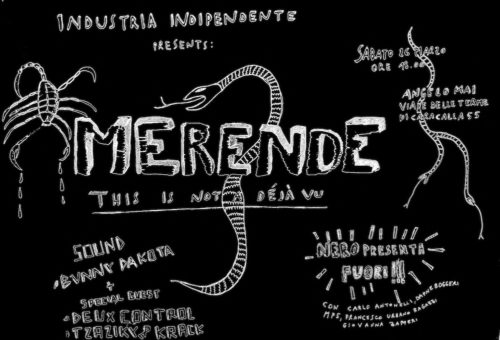 INDUSTRIA INDIPENDENTE
PRESENTS:
SABATO 16 MARZO
ORE 18.00
ANGELO MAI
VIALE DELLE TERME
DI CARACALLA 55
MERENDE
THIS IS NOT DÉJÀ VU
SOUND
• BUNNY DAKOTA
+
SPECIAL GUEST
• DEUX CONTROL
• TZAZIKY & KRACK
NERO PRESENTA
FUORI!!!
CON CARLO ANTONELLI, DAFNE BOGGERI
MP5, FRANCESCO URBANO RAGAZZI
GIOVANNA ZAPPERI